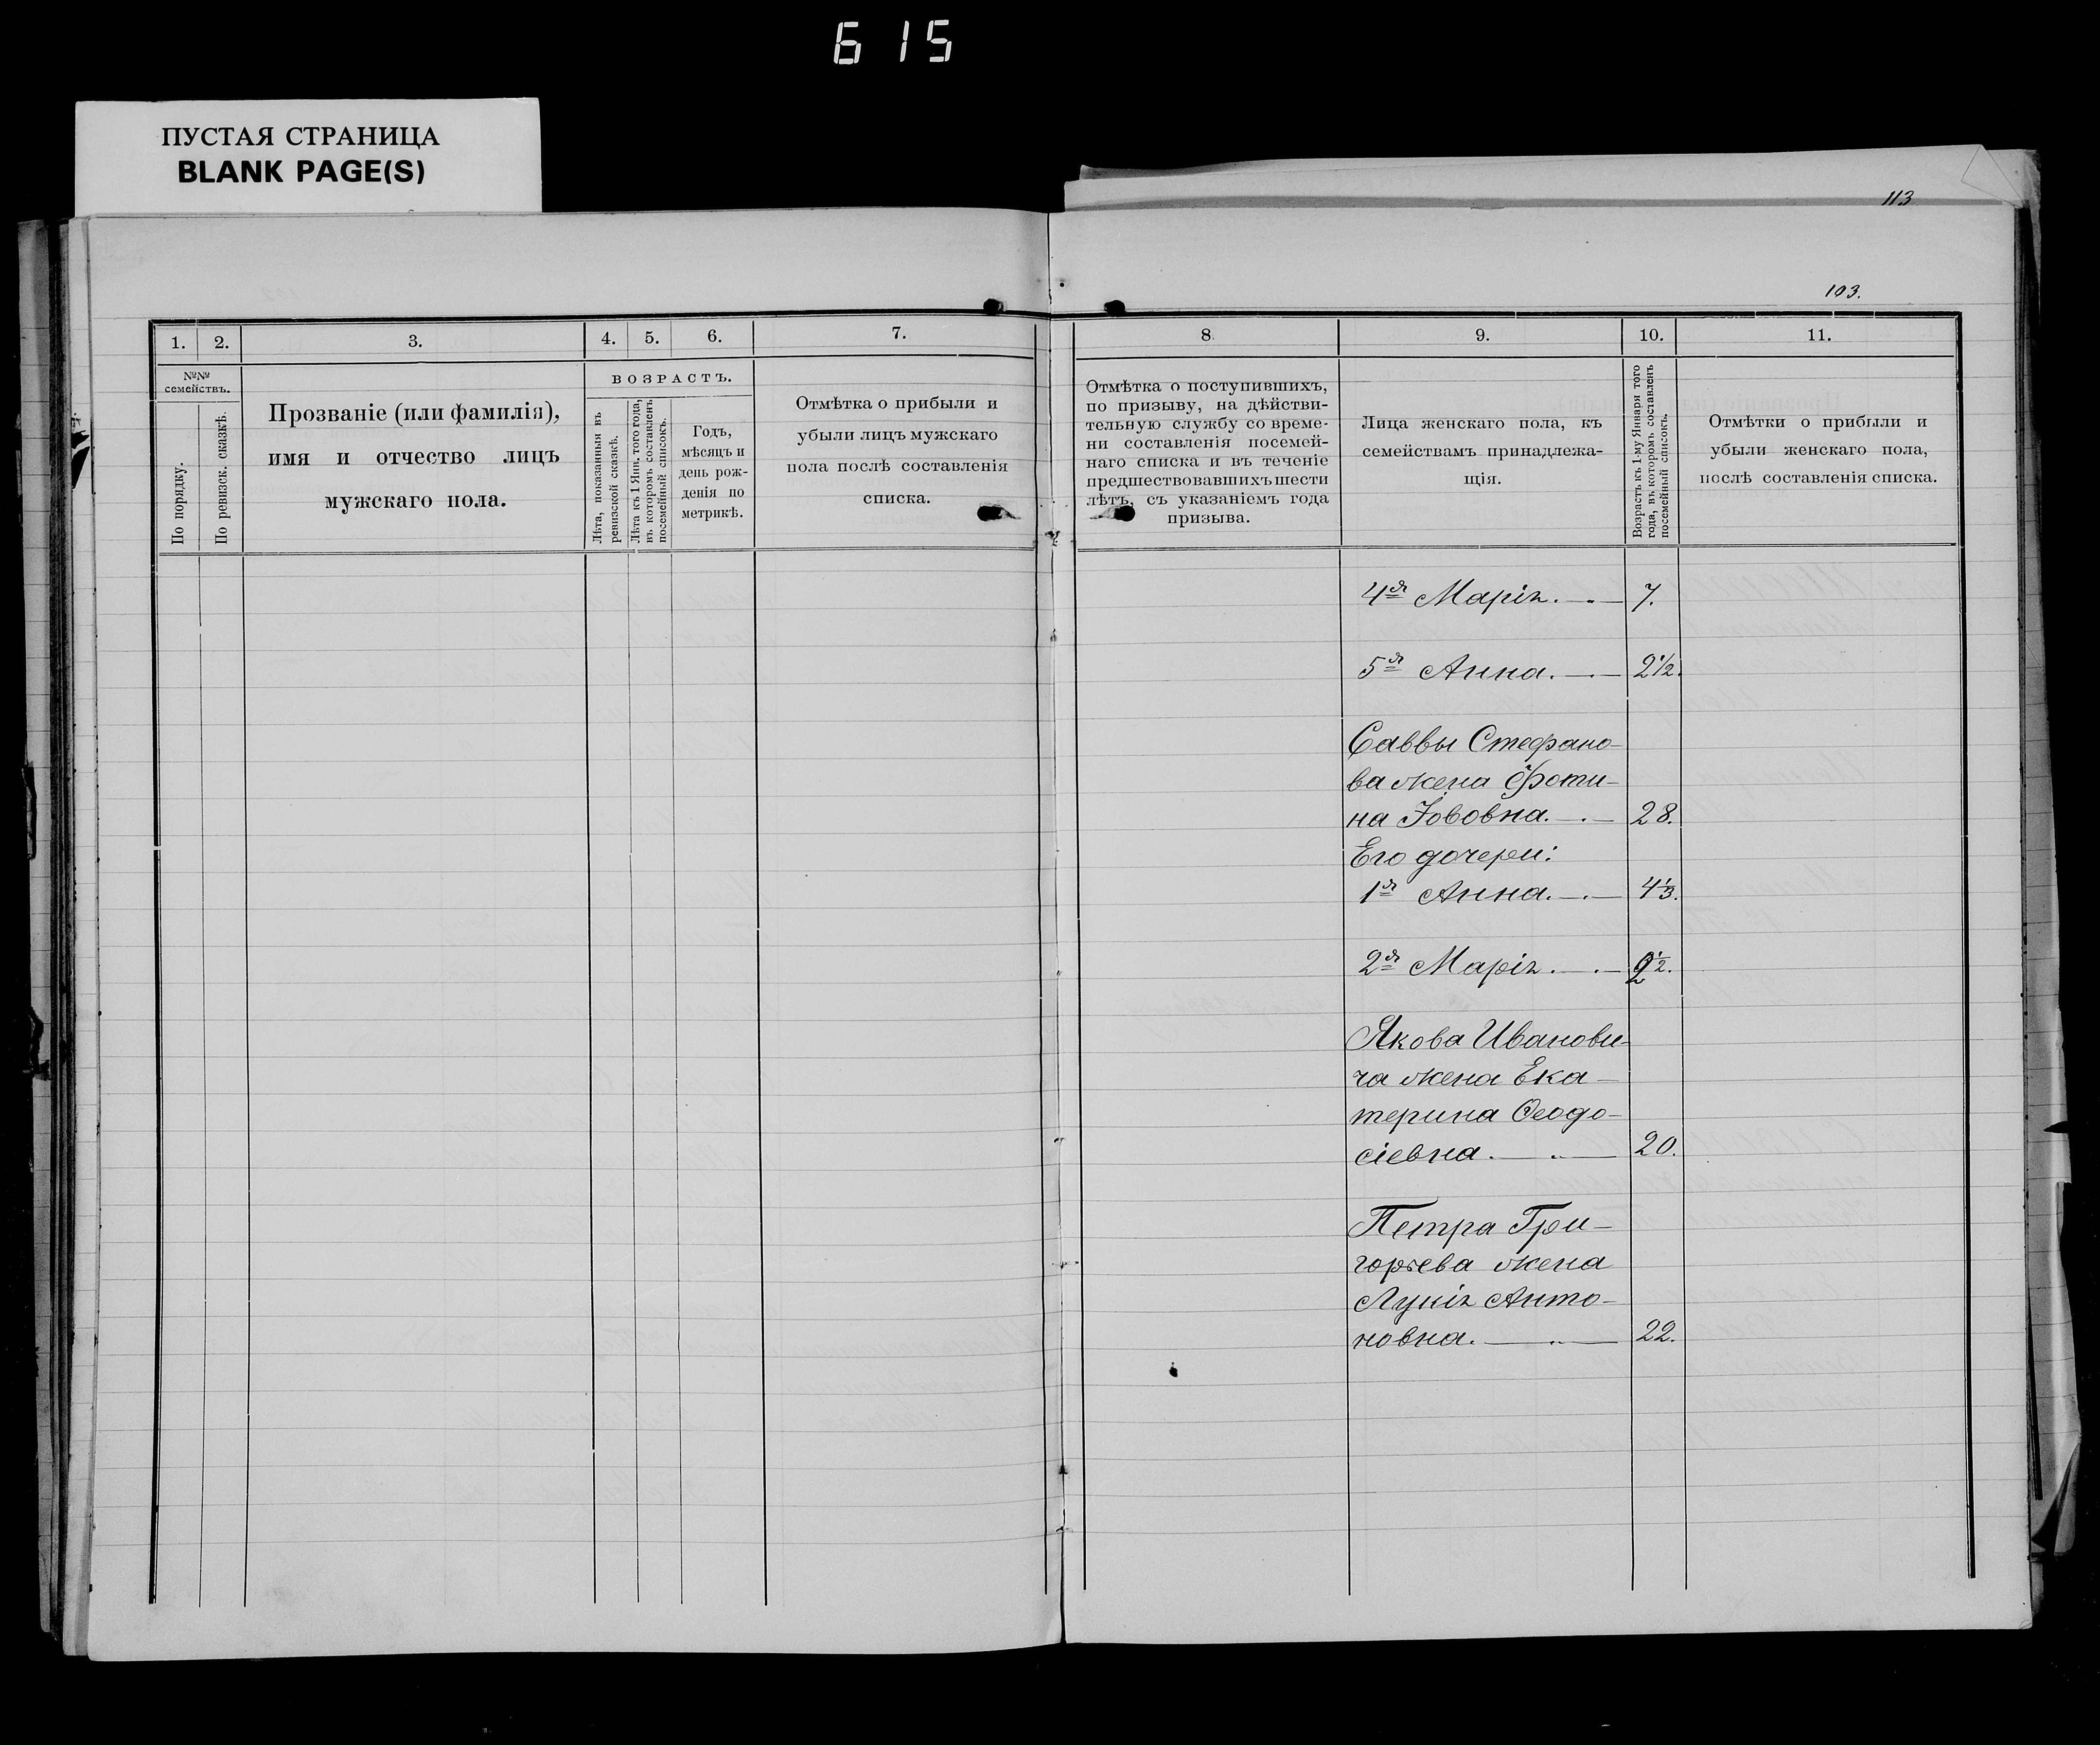 615
ПУСТАЯ СТРАНИЦА
BLANK PAGE(S)
113
103.
1. 2. 3. 4. 5. 6. 7.
№№ семействъ.
По порядку.
По ревизск. сказкѣ.
Прозваніе (или фамилія),
имя и отчество лицъ
мужскаго пола.
ВОЗРАСТЪ.
Лѣта, показанныя въ
ревизской сказкѣ.
Лѣта къ 1 Янв. того года,
въ которомъ составленъ
посемейный списокъ.
Годъ,
мѣсяцъ и
день рож-
денія по
метрикѣ.
Отмѣтка о прибыли и
убыли лицъ мужскаго
пола послѣ составленія
списка.
8. 9. 10. 11.
Отмѣтка о поступившихъ,
по призыву, на дѣйстви-
тельную службу со време-
ни составленія посемей-
наго списка и въ теченіе
предшествовавшихъ шести
лѣтъ, съ указаніемъ года
призыва.
Лица женскаго пола, къ
семействамъ принадлежа-
щія.
Возрастъ къ 1-му Января того
года, въ которомъ составленъ
посемейный списокъ.
Отмѣтки о прибыли и
убыли женскаго пола,
послѣ составленія списка.
4я Марія. 7.
5я Анна. 2 1/2.
Саввы Стефано-
ва жена Фоти-
на Іововна. 28.
Его дочери:
1я Анна. 4 1/3.
2я Марія. 2 1/2.
Якова Иванови-
ча жена Ека-
терина Ѳеодо-
сіевна. 20.
Петра Гри-
горьева жена
Лукія Анто-
новна. 22.